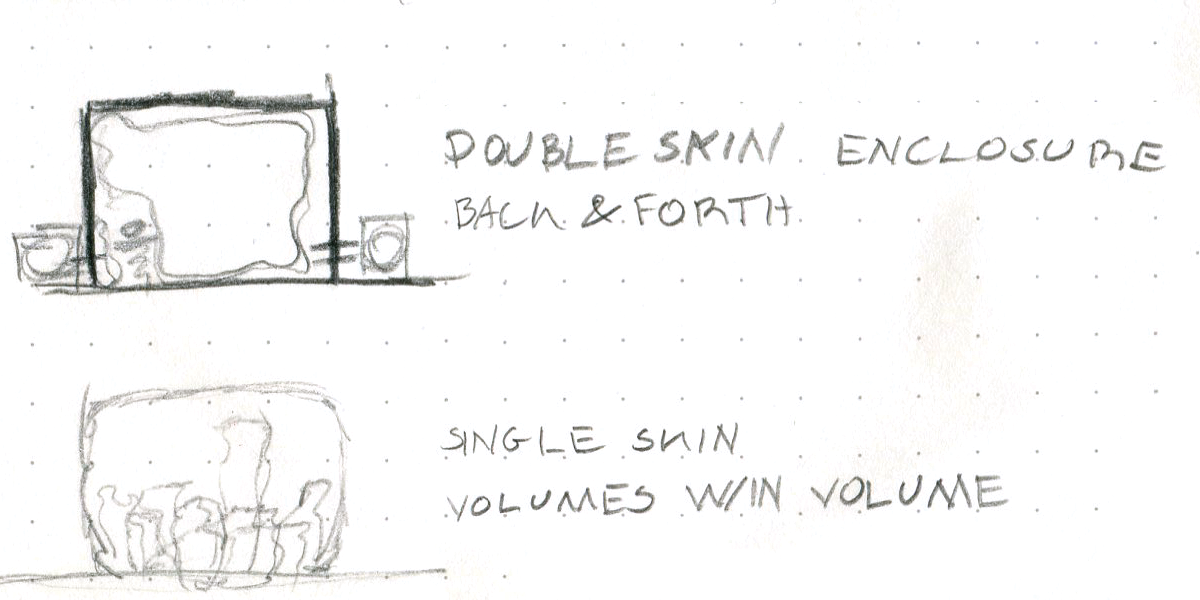 DOUBLE SKIN ENCLOSURE
BACK & FORTH
SINGLE SKIN
VOLUMES W/IN VOLUME